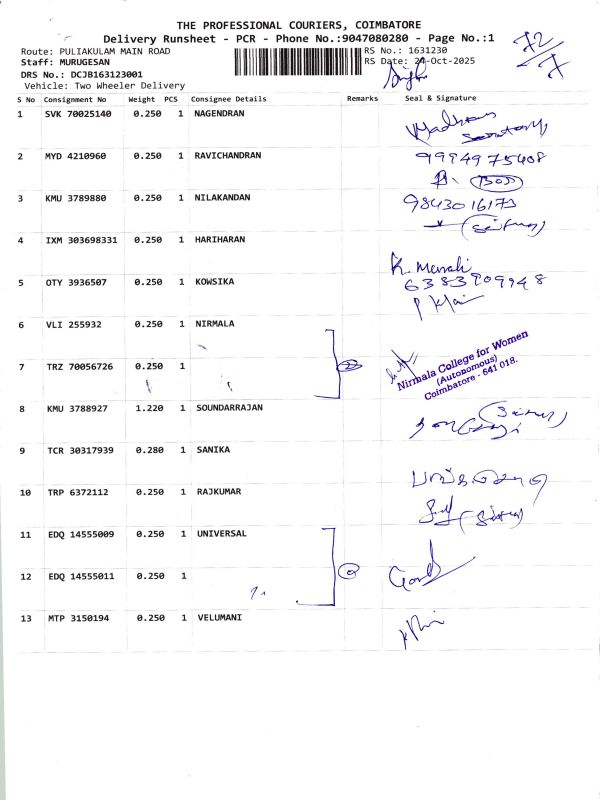 THE PROFESSIONAL COURIERS, COIMBATORE
Delivery Runsheet - PCR - Phone No.:9047080280 - Page No.:1
72/7
Route: PULIAKULAM MAIN ROAD
RS No.: 1631230
Staff: MURUGESAN
RS Date: 24-Oct-2025
DRS No.: DCJB163123001
Vehicle: Two Wheeler Delivery
S No Consignment No Weight PCS Consignee Details Remarks Seal & Signature
1 SVK 70025140 0.250 1 NAGENDRAN
2 MYD 4210960 0.250 1 RAVICHANDRAN 9994975408
3 KMU 3789880 0.250 1 NILAKANDAN 9843016173
4 IXM 303698331 0.250 1 HARIHARAN
5 OTY 3936507 0.250 1 KOWSIKA 6383909948
6 VLI 255932 0.250 1 NIRMALA
7 TRZ 70056726 0.250 1
Nirmala College for Women
(Autonomous)
Coimbatore - 641 018.
8 KMU 3788927 1.220 1 SOUNDARRAJAN
9 TCR 30317939 0.280 1 SANIKA
10 TRP 6372112 0.250 1 RAJKUMAR
11 EDQ 14555009 0.250 1 UNIVERSAL
12 EDQ 14555011 0.250 1
13 MTP 3150194 0.250 1 VELUMANI